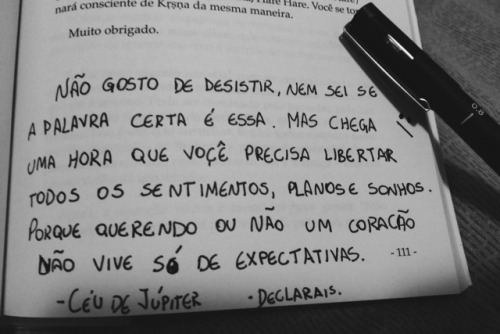 nará consciente de Kṛṣṇa da mesma maneira. Você se tor
Muito obrigado.
NÃO GOSTO DE DESISTIR, NEM SEI SE
A PALAVRA CERTA É ESSA. MAS CHEGA
UMA HORA QUE VOÇÊ PRECISA LIBERTAR
TODOS OS SENTIMENTOS, PLANOS E SONHOS.
PORQUE QUERENDO OU NÃO UM CORAÇÃO
NÃO VIVE SÓ DE EXPECTATIVAS.
- 111 -
- CÉU DE JÚPITER - DECLARAIS.
0.8